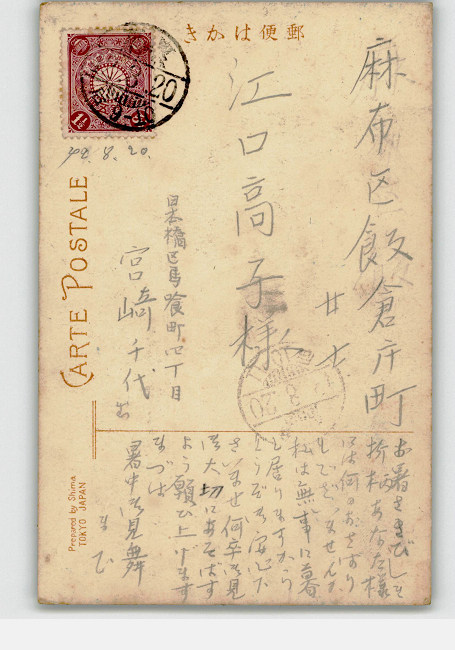 郵便はかき
麻布区飯倉片町
廿七
江口高子様
日本橋区馬喰町四丁目
宮崎千代
出
42.8.20.
CARTE POSTALE
Prepared by Shima
TOKYO JAPAN
お暑さきびしき
折柄あなた様
には何のおさわり
もございませんか
私は無事に暮
し居りますから
どうぞ御安心下
さいませ何卒御身
御大切にあそばす
よう願ひ上げます
まづは
暑中御見舞
まで